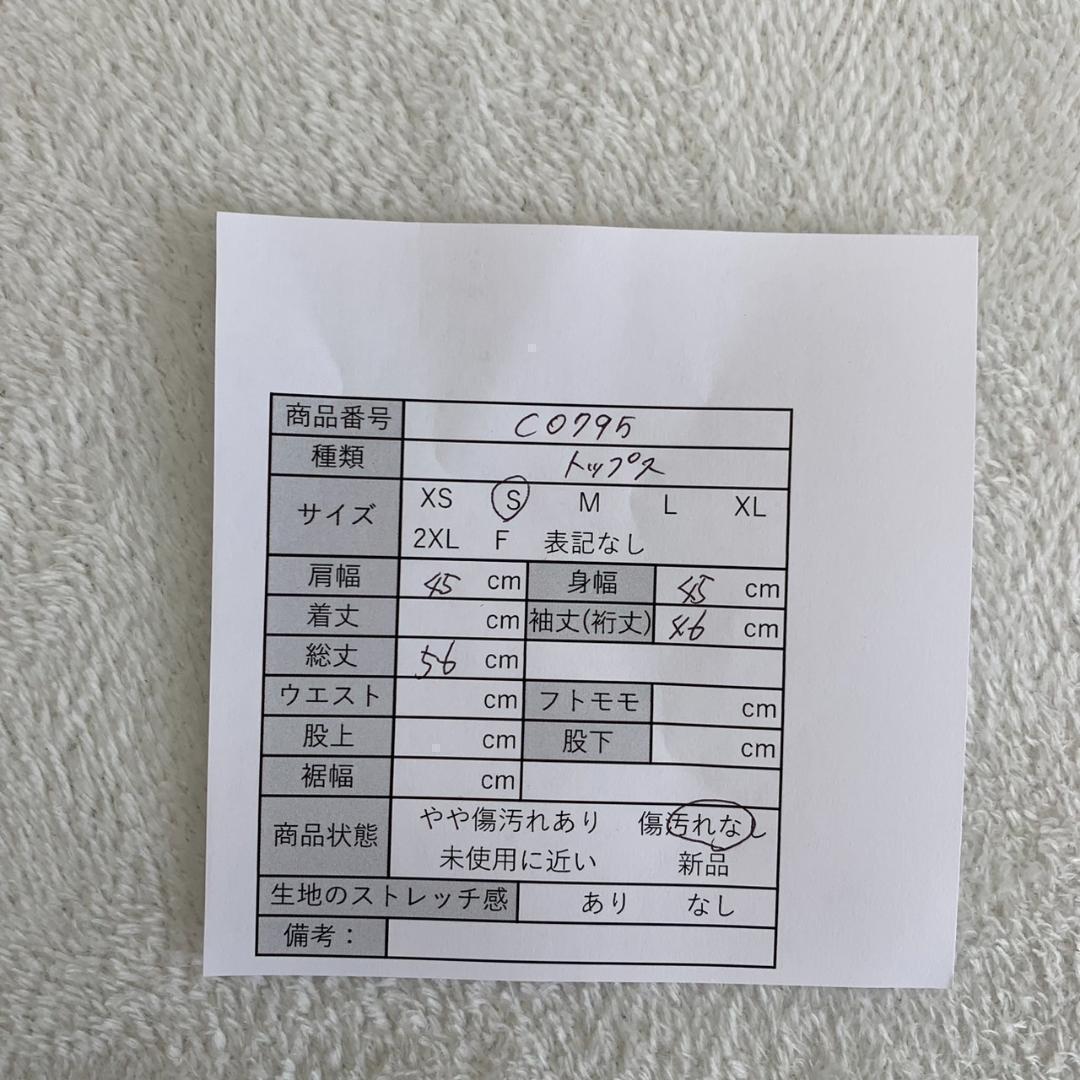 商品番号 C0795
種類 トップス
サイズ XS S M L XL
2XL F 表記なし
肩幅 45 cm 身幅 45 cm
着丈 cm 袖丈(裄丈) 46 cm
総丈 56 cm
ウエスト cm フトモモ cm
股上 cm 股下 cm
裾幅 cm
商品状態 やや傷汚れあり 傷汚れなし
未使用に近い 新品
生地のストレッチ感 あり なし
備考：